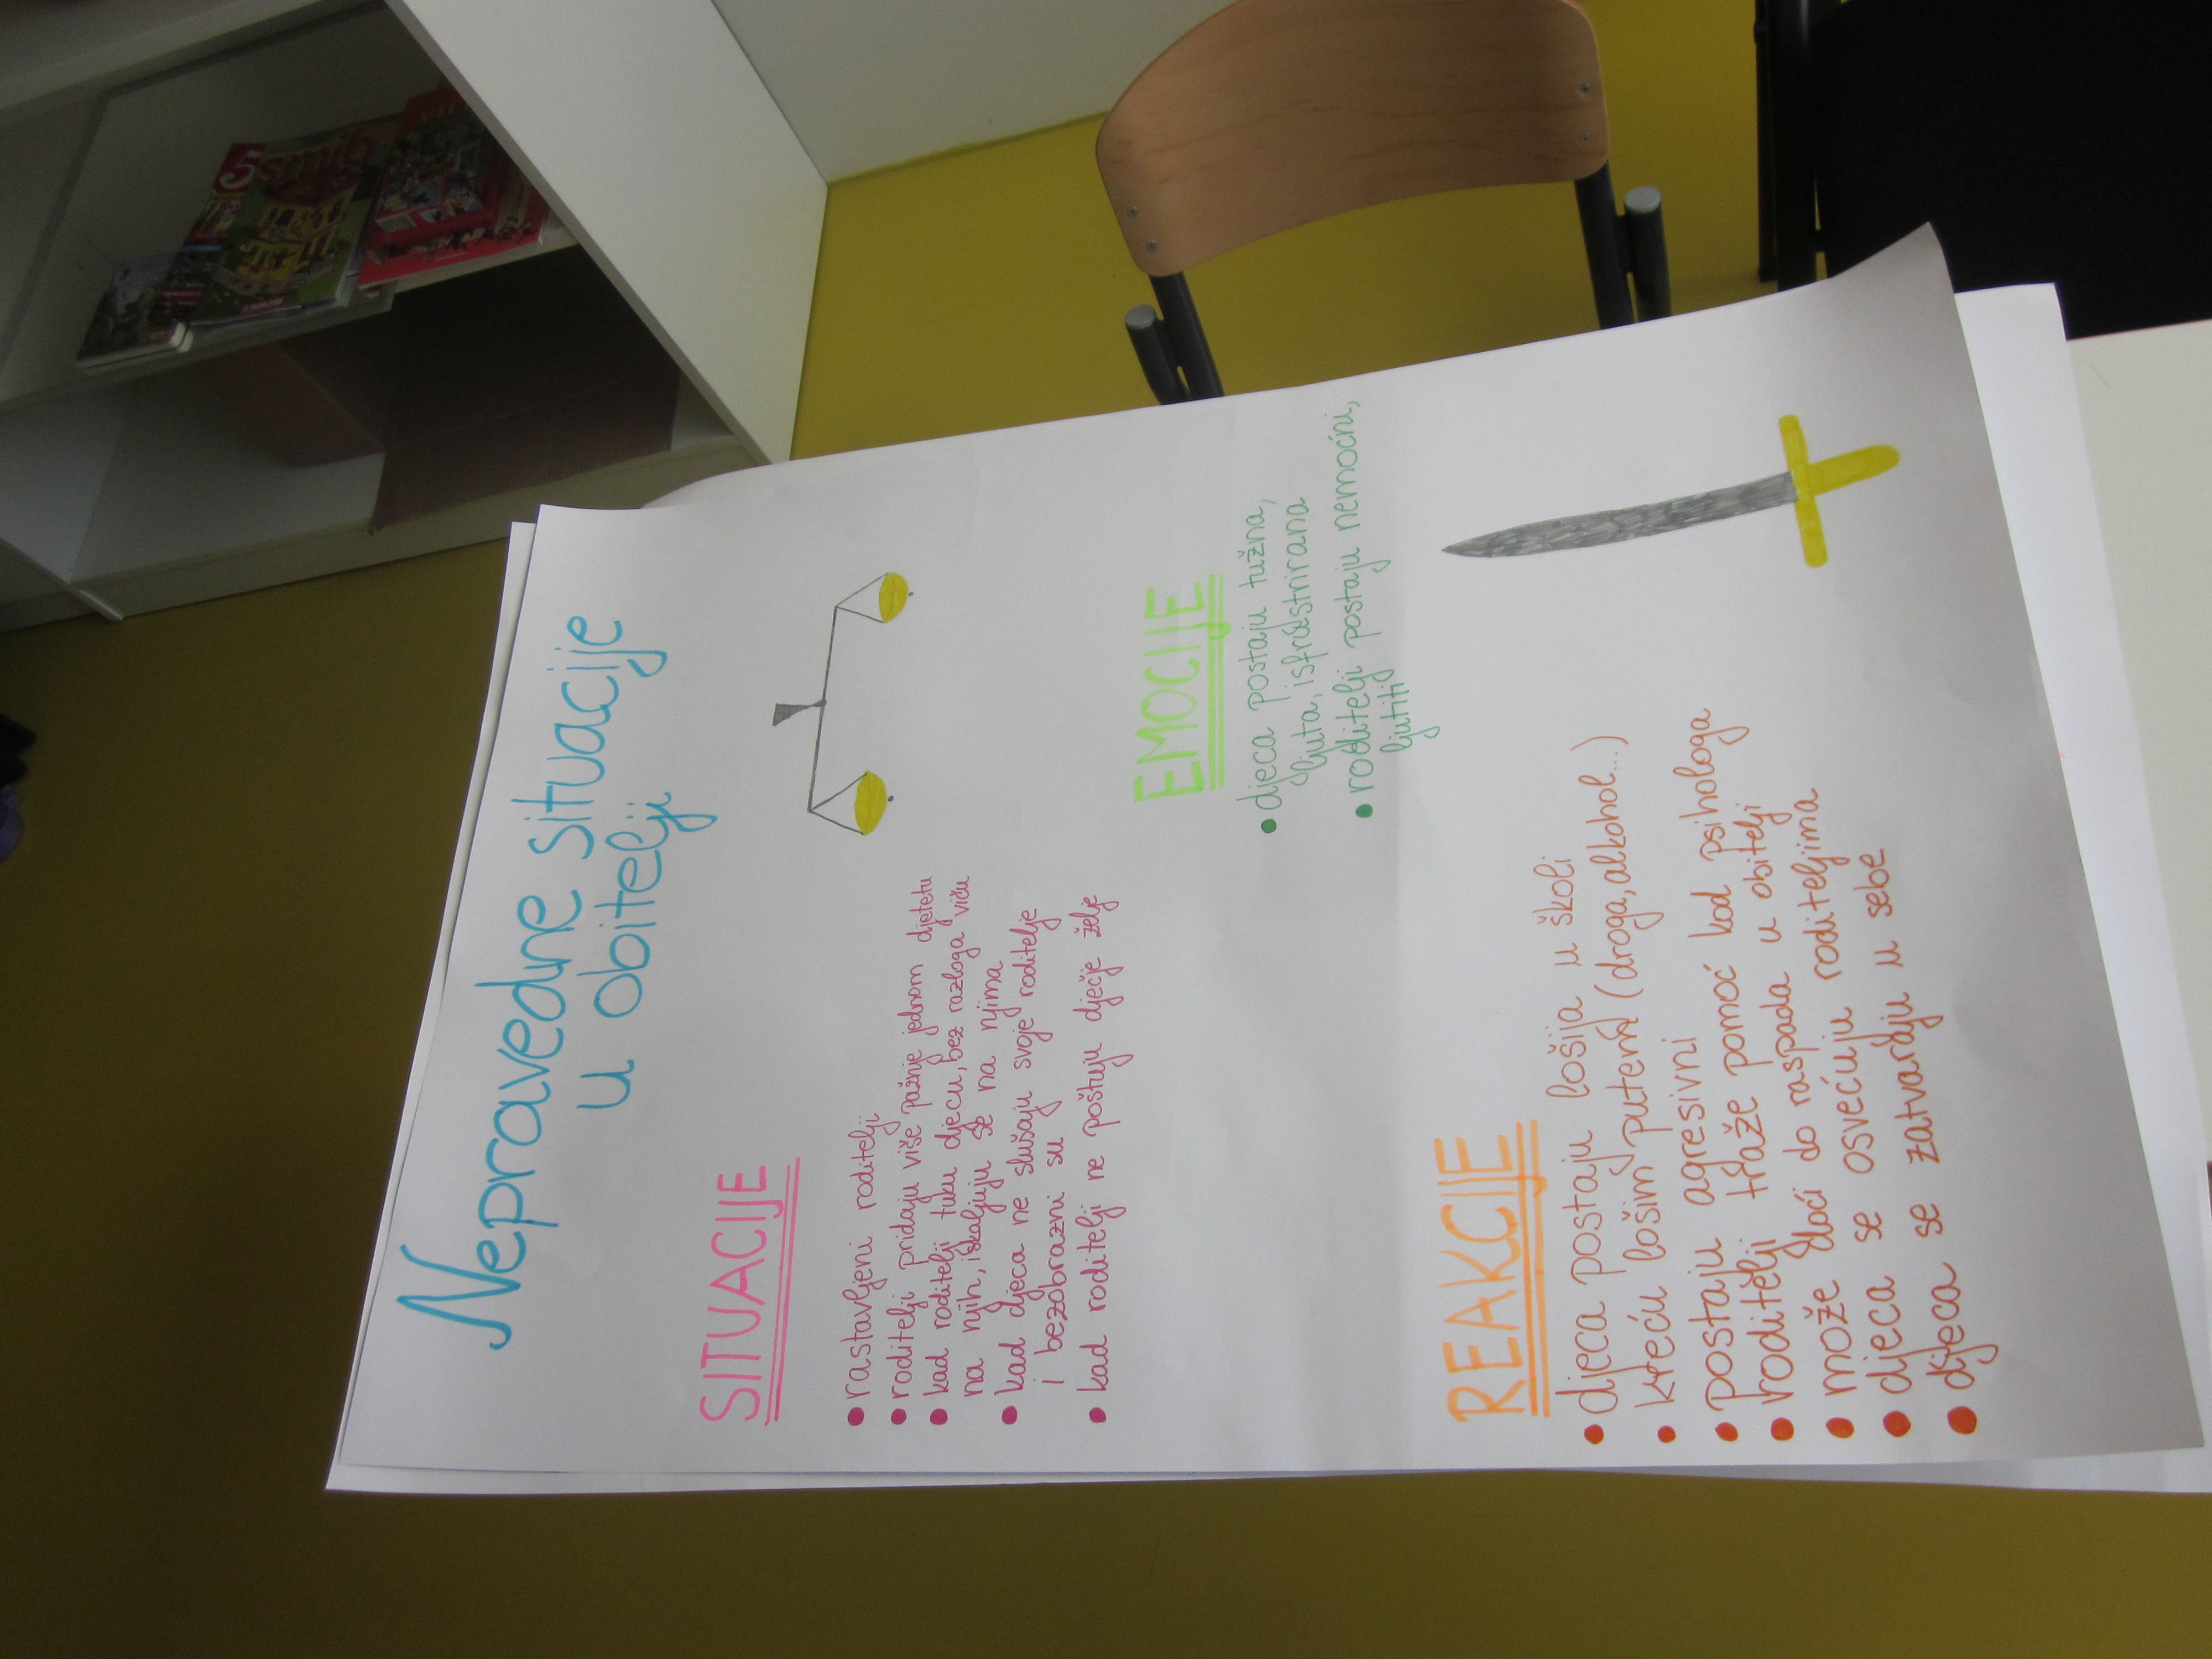 Nepravedne situacije
u obitelji
SITUACIJE
• rastavljeni roditelji
• roditelji pridaju više pažnje jednom djetetu
• kad roditelji tuku djecu, bez razloga viču
na njih, iskaljuju se na njima
• kad djeca ne slušaju svoje roditelje
i bezobrazni su
• kad roditelji ne poštuju dječje želje
EMOCIJE
• djeca postaju tužna,
ljuta, isfrustrirana
• roditelji postaju nemoćni,
ljutiti
REAKCIJE
• djeca postaju lošija u školi
• kreću lošim putem (droga, alkohol...)
• postaju agresivni
• roditelji traže pomoć kod psihologa
• može doći do raspada u obitelji
• djeca se osvećuju roditeljima
• djeca se zatvaraju u sebe
5